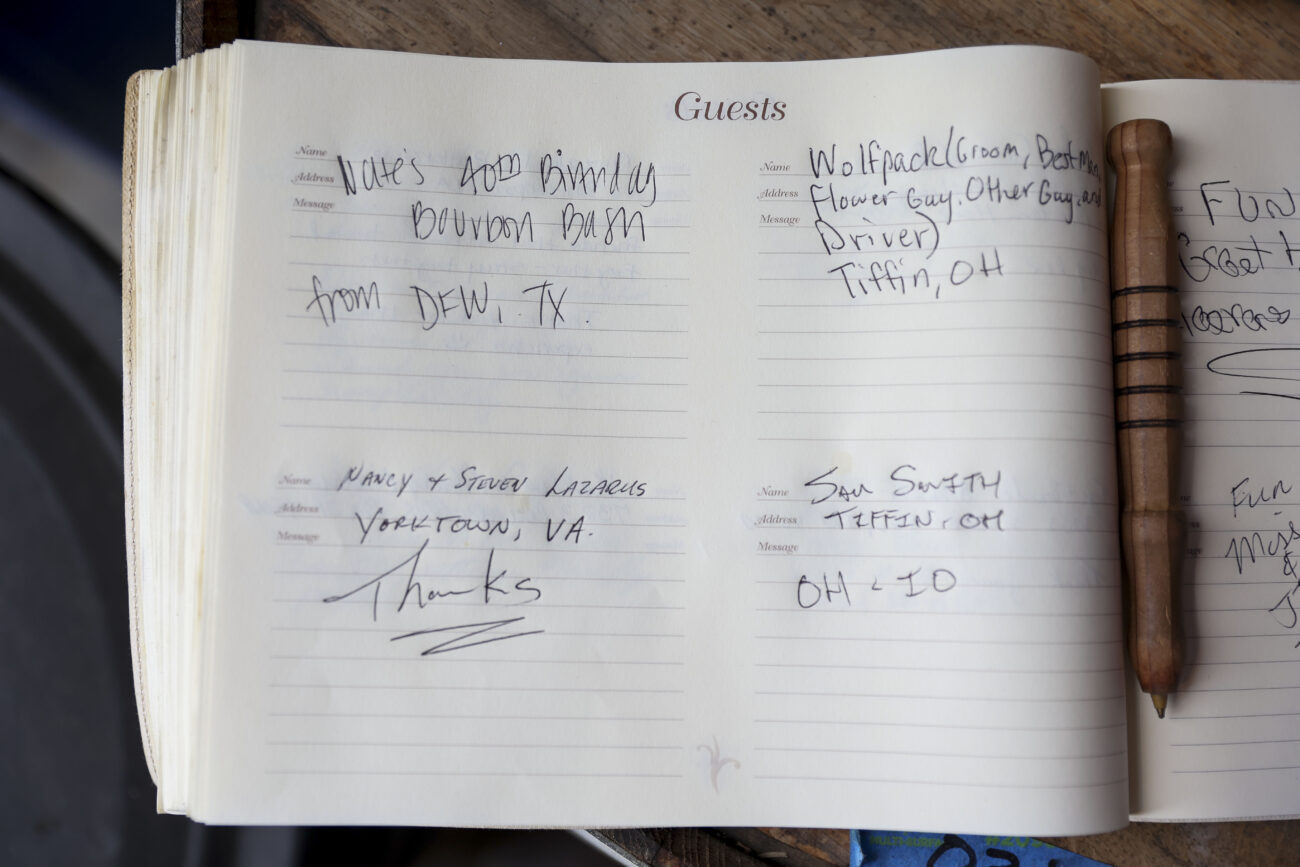 Guests
Name
Address
Message
Nate's 40th Birthday
Bourbon Bash
from DFW, TX.
Name
Address
Message
Wolfpack (Groom, Best Man
Flower Guy, Other Guy, and
Driver)
Tiffin, OH
Name NANCY + STEVEN LAZARUS
Address YORKTOWN, VA.
Message
Thanks
Name SAM SMITH
Address TIFFIN, OH
Message
OH - IO
FUN
Great
Fun